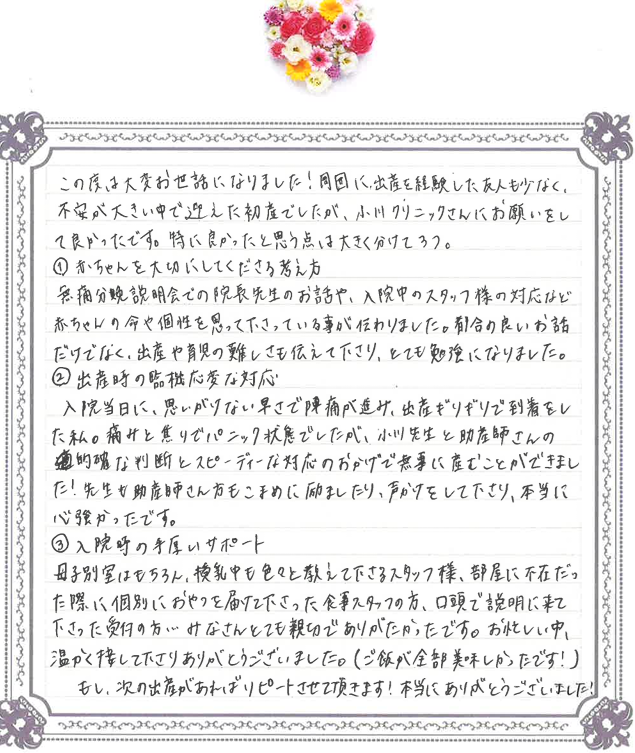 この度は大変お世話になりました！周囲に出産を経験した友人も少なく、
不安が大きい中で迎えた初産でしたが、小川クリニックさんにお願いをし
て良かったです。特に良かったと思う点は大きく分けて3つ。
①赤ちゃんを大切にしてくださる考え方
無痛分娩説明会での院長先生のお話や、入院中のスタッフ様の対応など
赤ちゃんの命や個性を思って下さっている事が伝わりました。都合の良いお話
だけでなく、出産や育児の難しさも伝えて下さり、とても勉強になりました。
②出産時の臨機応変な対応
入院当日に、思いがけない早さで陣痛が進み、出産ギリギリで到着をし
た私。痛みと焦りでパニック状態でしたが、小川先生と助産師さんの
的確な判断とスピーディーな対応のおかげで無事に産むことができまし
た！先生も助産師さん方もこまめに励ましたり、声かけをして下さり、本当に
心強かったです。
③入院時の手厚いサポート
母子別室はもちろん、授乳中も色々と教えて下さるスタッフ様、部屋に不在だっ
た際に個別におやつを届けて下さった食事スタッフの方、口頭で説明に来て
下さった受付の方…みなさんとても親切でありがたかったです。お忙しい中、
温かく接して下さりありがとうございました。（ご飯が全部美味しかったです！）
もし、次の出産があればリピートさせて頂きます！本当にありがとうございました！